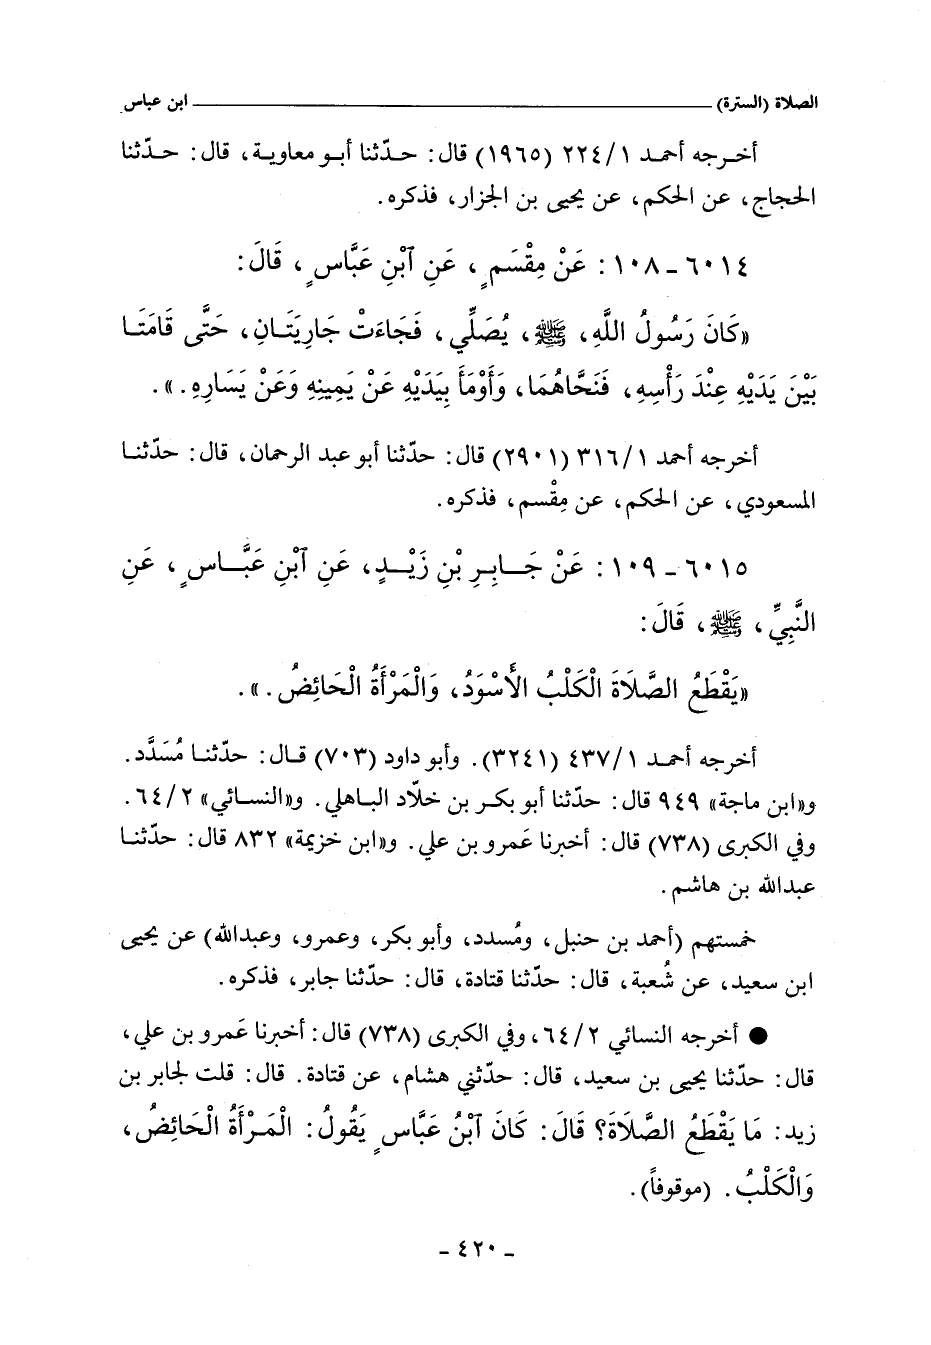 الصلاة (السترة) ــــــــــــــــــــــــــــــــــــــــ ابن عباس
أخرجه أحمد ٢٢٤/١ (١٩٦٥) قال: حدّثنا أبو معاوية، قال: حدّثنا
الحجاج، عن الحكم، عن يحيى بن الجزار، فذكره.
٦٠١٤ ـ ١٠٨: عَنْ مِقْسَمٍ، عَنِ ٱبْنِ عَبَّاسٍ، قَالَ:
«كَانَ رَسُولُ اللَّهِ، ﷺ، يُصَلِّي، فَجَاءَتْ جَارِيَتَانِ، حَتَّى قَامَتَا
بَيْنَ يَدَيْهِ عِنْدَ رَأْسِهِ، فَنَحَّاهُمَا، وَأَوْمَأَ بِيَدَيْهِ عَنْ يَمِينِهِ وَعَنْ يَسَارِهِ.».
أخرجه أحمد ٣١٦/١ (٢٩٠١) قال: حدّثنا أبو عبد الرحمان، قال: حدّثنا
المسعودي، عن الحكم، عن مِقْسم، فذكره.
٦٠١٥ ـ ١٠٩: عَنْ جَابِرِ بْنِ زَيْدٍ، عَنِ ٱبْنِ عَبَّاسٍ، عَنِ
النَّبِيِّ، ﷺ، قَالَ:
«يَقْطَعُ الصَّلَاةَ الْكَلْبُ الأَسْوَدُ، وَالْمَرْأَةُ الْحَائِضُ.».
أخرجه أحمد ٤٣٧/١ (٣٢٤١). وأبو داود (٧٠٣) قال: حدّثنا مُسَدَّد.
و«ابن ماجة» ٩٤٩ قال: حدّثنا أبو بكر بن خلّاد الباهلي. و«النسائي» ٦٤/٢.
وفي الكبرى (٧٣٨) قال: أخبرنا عَمرو بن علي. و«ابن خزيمة» ٨٣٢ قال: حدّثنا
عبدالله بن هاشم.
خمستهم (أحمد بن حنبل، ومُسدد، وأبو بكر، وعمرو، وعبدالله) عن يحيى
ابن سعيد، عن شُعبة، قال: حدّثنا قتادة، قال: حدّثنا جابر، فذكره.
● أخرجه النسائي ٦٤/٢، وفي الكبرى (٧٣٨) قال: أخبرنا عَمرو بن علي،
قال: حدّثنا يحيى بن سعيد، قال: حدّثني هشام، عن قتادة. قال: قلت لجابر بن
زيد: مَا يَقْطَعُ الصَّلَاةَ؟ قَالَ: كَانَ ٱبْنُ عَبَّاسٍ يَقُولُ: الْمَرْأَةُ الْحَائِضُ،
وَالْكَلْبُ. (موقوفاً).
ـ ٤٢٠ ـ